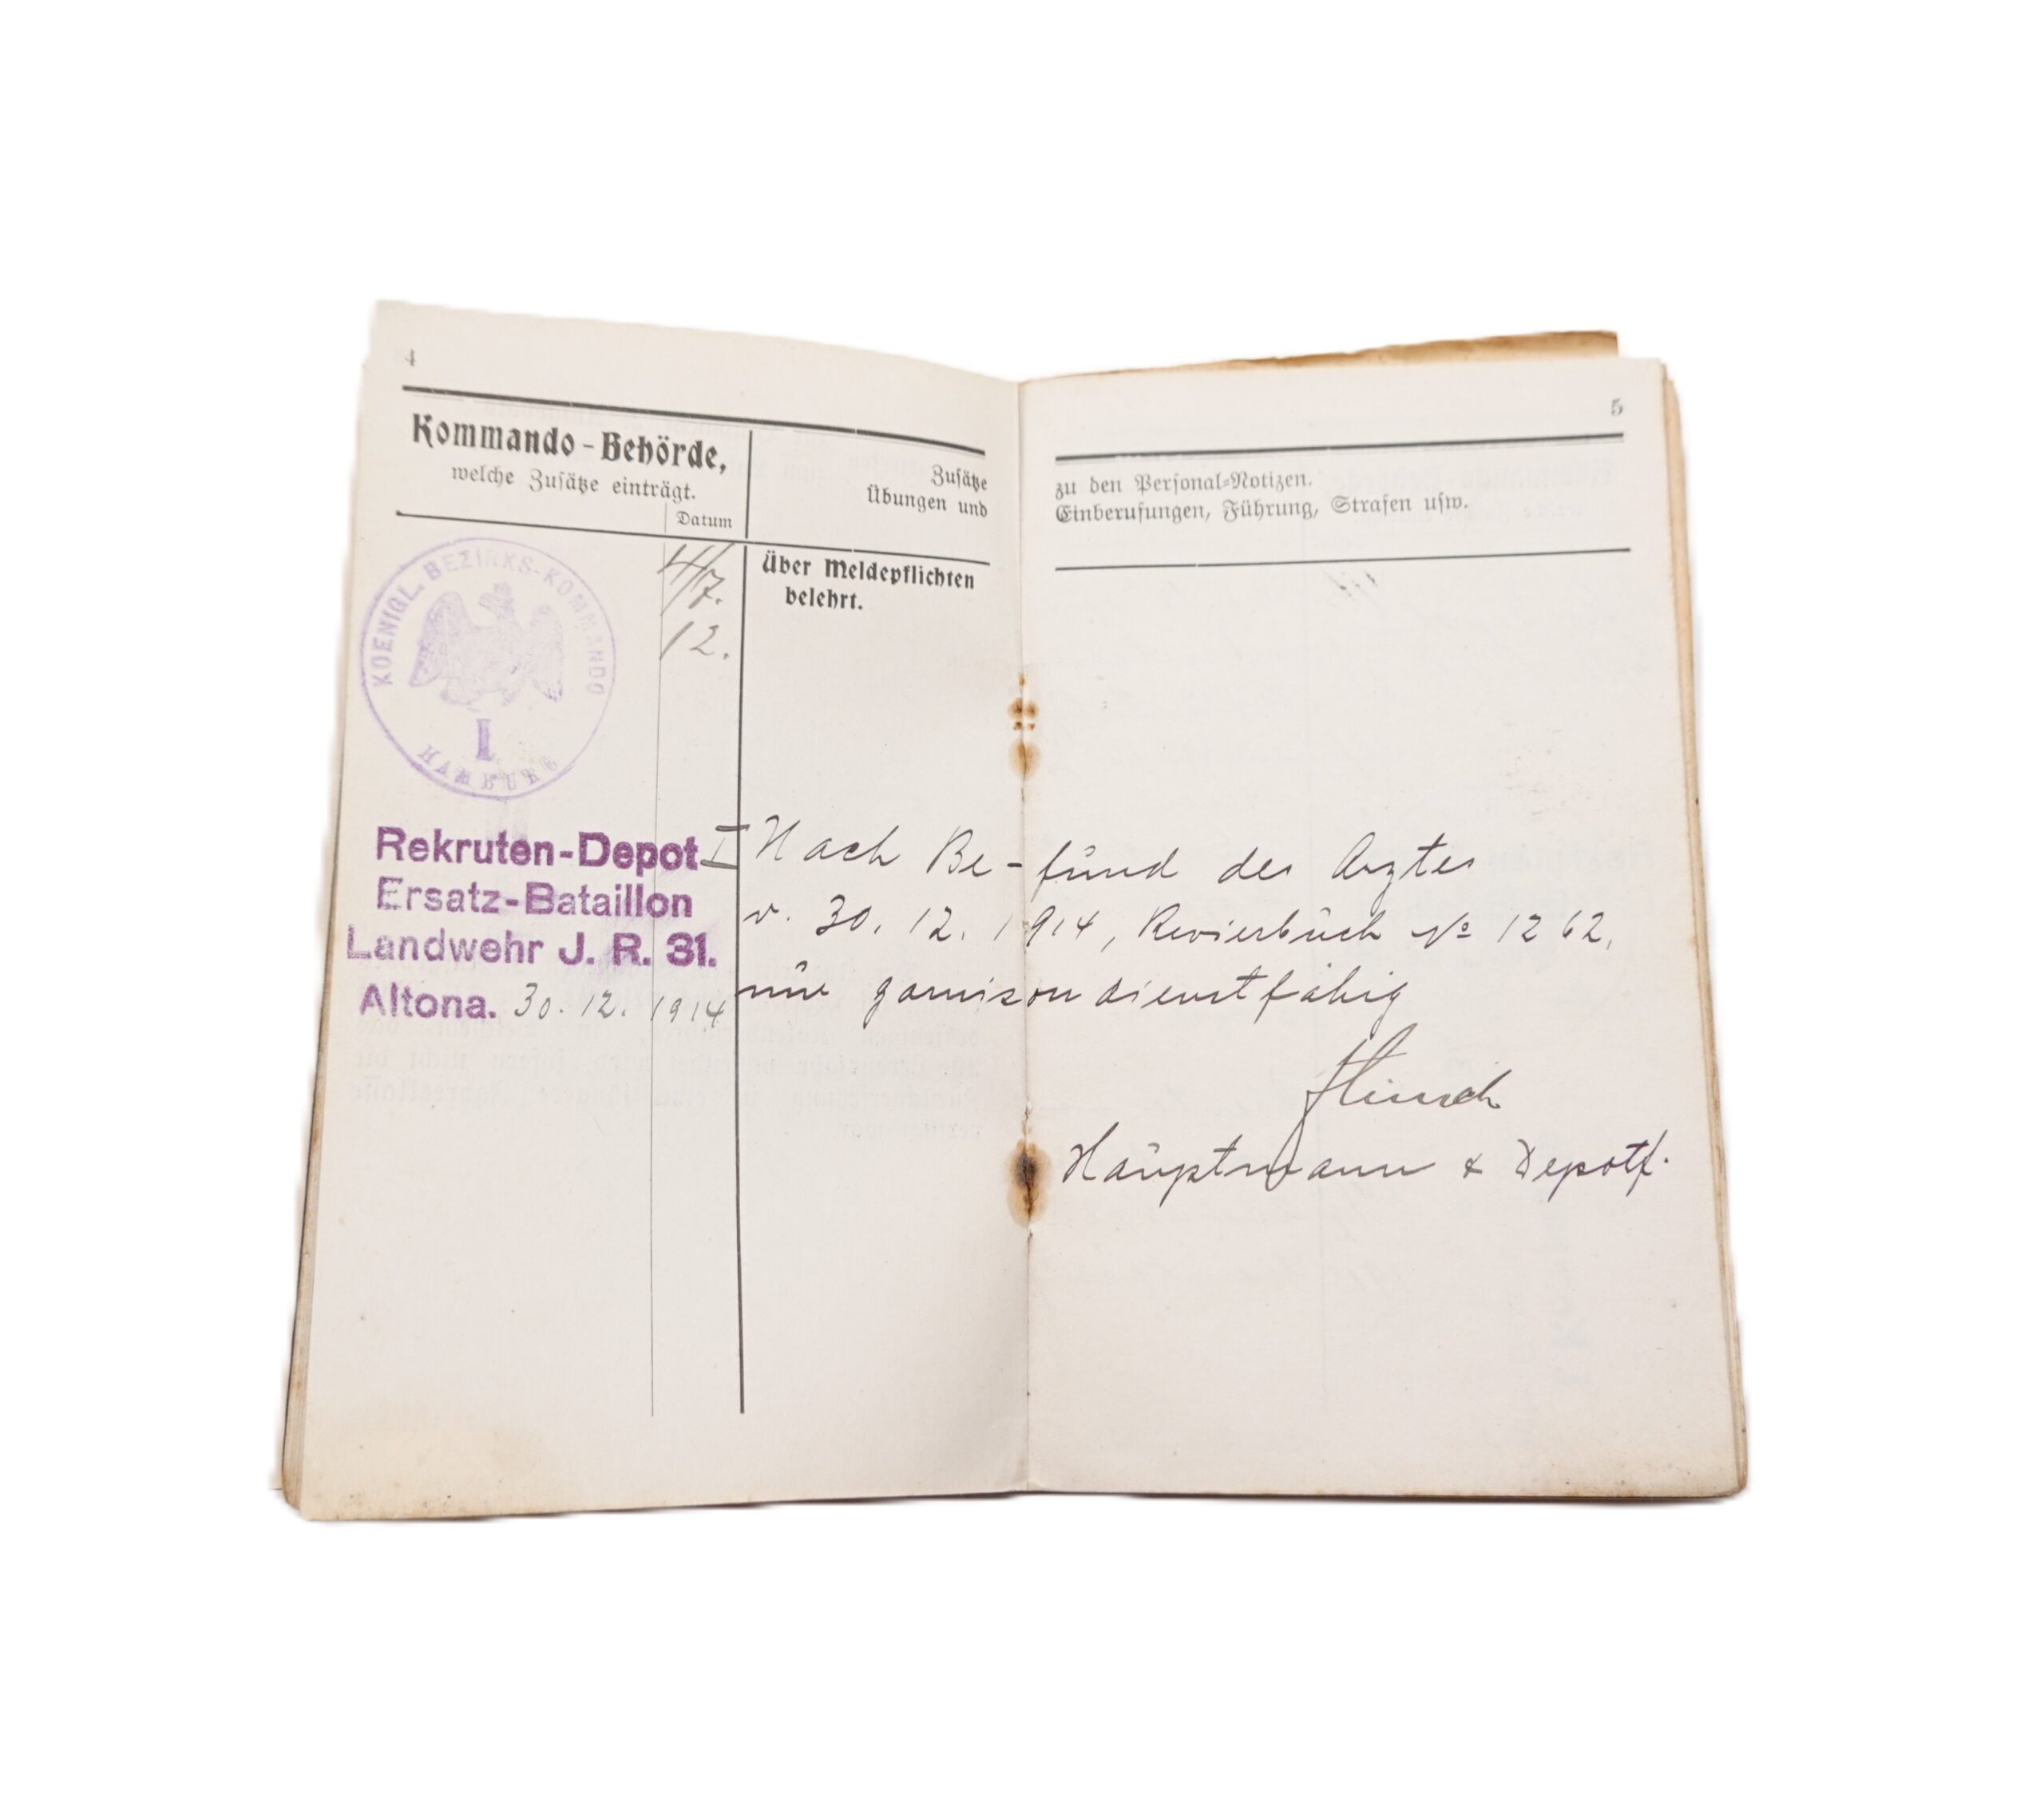 4
Kommando-Behörde,
welche Zusätze einträgt.
Datum
Zusätze
Übungen und
KOENIGL. BEZIRKS-KOMMANDO
I
HAMBURG
4/7.
12.
Über Meldepflichten
belehrt.
Rekruten-Depot I
Ersatz-Bataillon
Landwehr J. R. 31.
Altona. 30. 12. 1914
5
zu den Personal-Notizen.
Einberufungen, Führung, Strafen usw.
Nach Be-fund des Arztes
v. 30. 12. 1914, Revierbuch No 1262,
nur garnisondienstfähig
Hauptmann & Depotf.